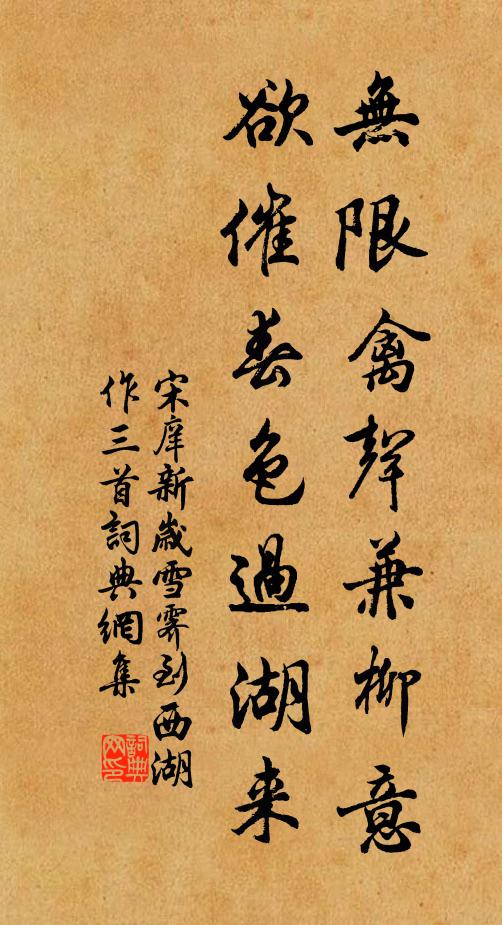 無限禽聲兼柳意
欲催春色過湖来
宋庠新歲雪霽到西湖
作三首詞典網集
詞典网印